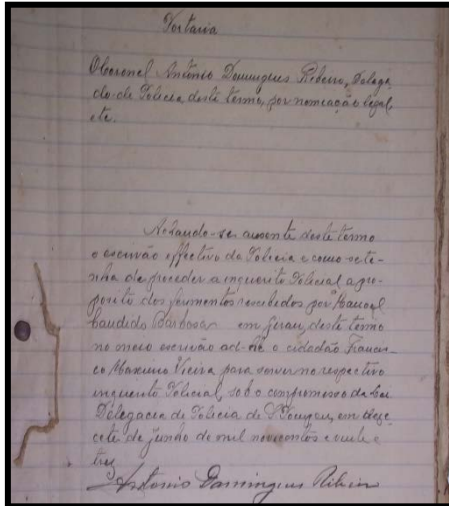 Portaria
O Coronel Antônio Domingues Ribeiro, Delega
do de Policia deste termo, por nomeação legal,
etc.
Achando-se ausente deste termo
o escrivão effectivo da Policia e como se te-
nha de proceder a inquerito Policial a pro-
posito dos ferimentos recebidos por Manoel
Candido Barbosa em deste termo
no meio escrivão ad-hoc o cidadão Francis-
co Maximo Vieira para servir no respectivo
inquerito Policial, sob o compromisso da lei
Delegacia de Policia de S. em deze
cete de junho de mil novecentos e vinte e
tres
Antonio Domingues Ribeiro